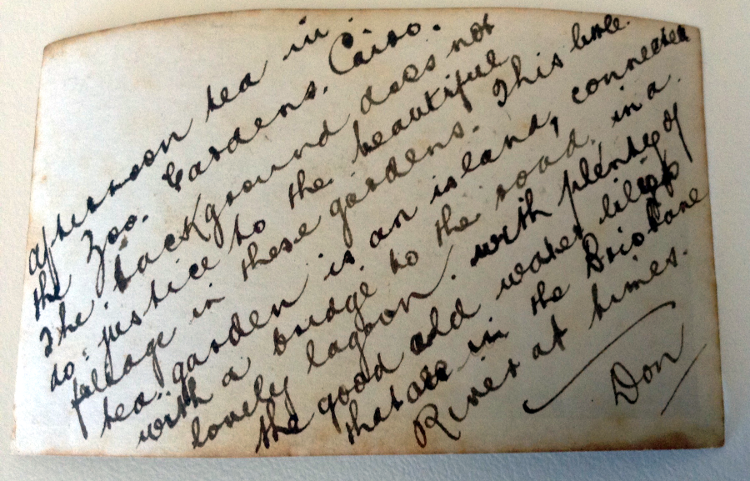 afternoon tea in.
the Zoo. Gardens. Cairo.
The background does not
do. justice to the beautiful
foliage in these gardens. This little.
tea. garden is an island, connected
with a bridge to the road. in a.
lovely lagoon. with plenty of
the good old water lilies
that are in the Brisbane
River at times.
Don